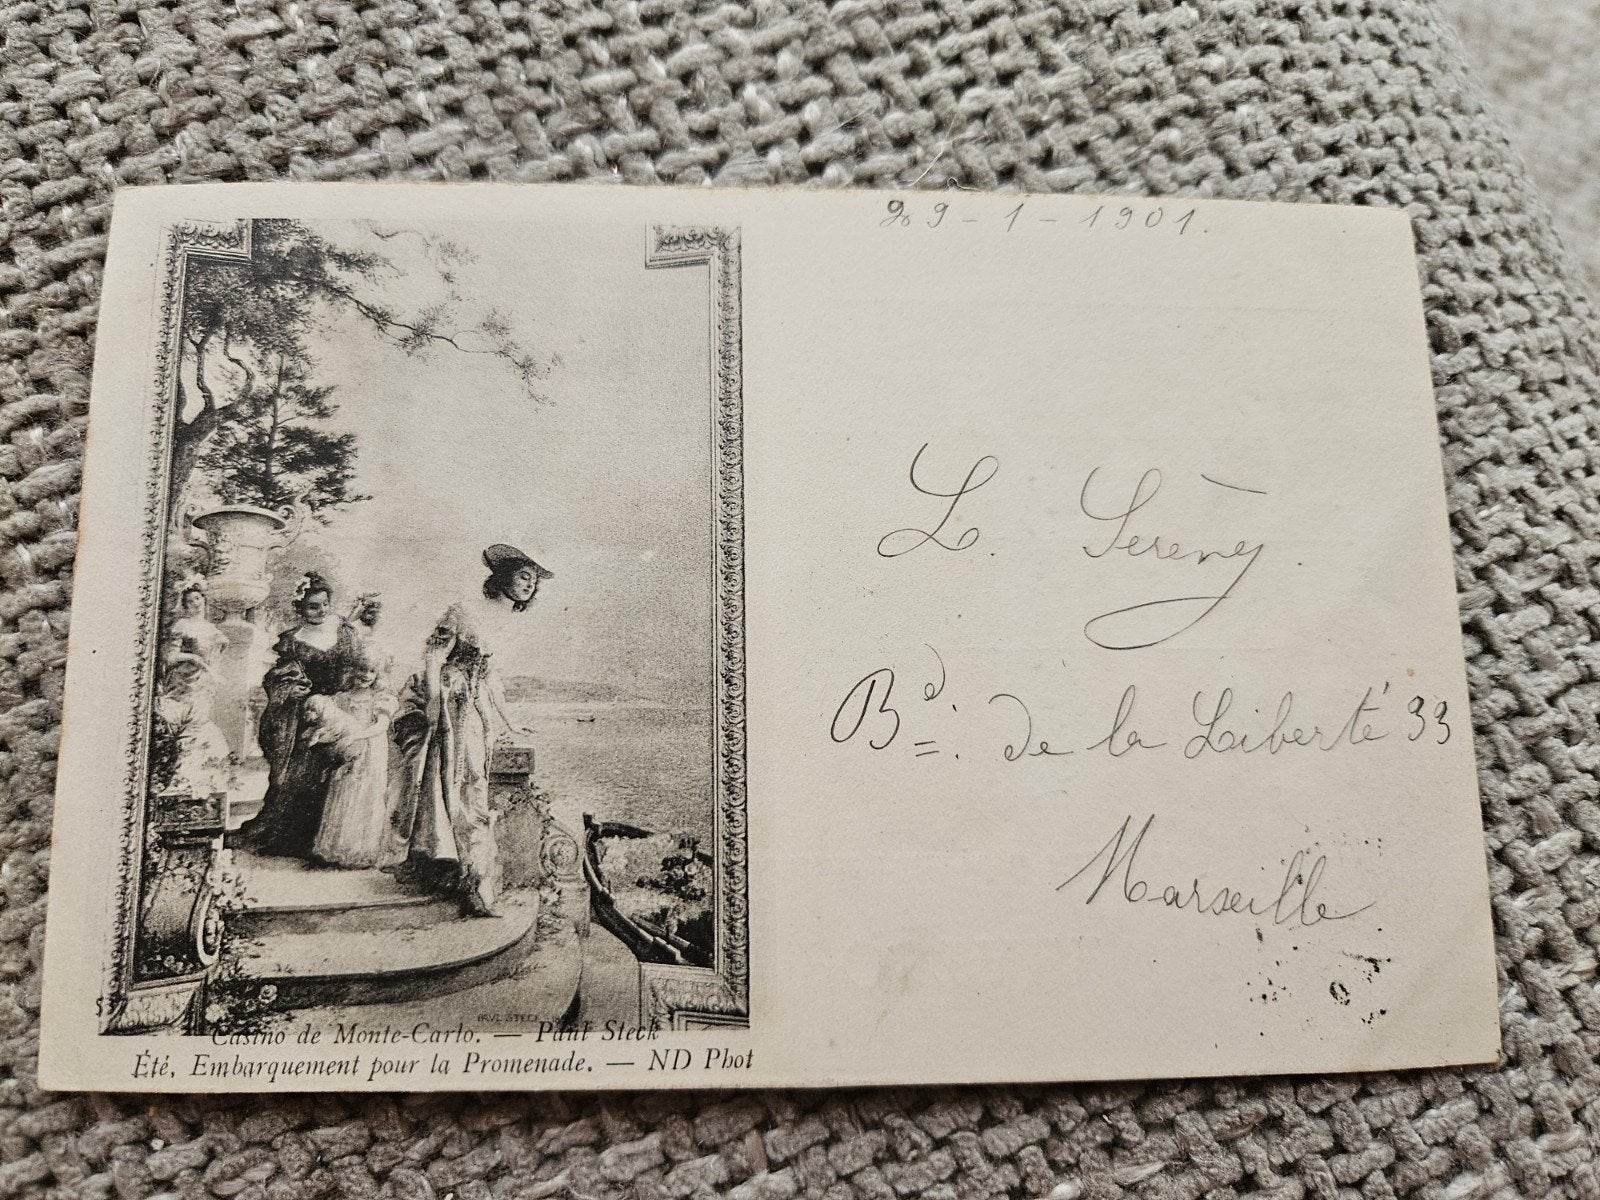 29-1-1901.
L. Serèny
Bd. de la Liberté 33
Marseille
PAUL STECK
Casino de Monte-Carlo. — Paul Steck
Été, Embarquement pour la Promenade. — ND Phot